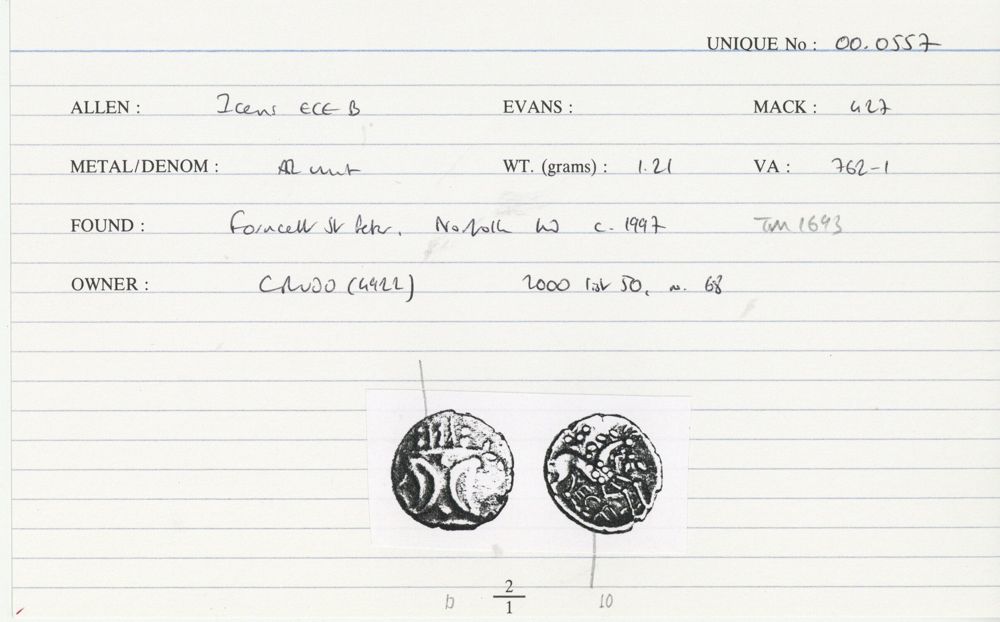 UNIQUE No : 00.0557
ALLEN : Iceni ECE B EVANS : MACK : 427
METAL/DENOM : AR unit WT. (grams) : 1.21 VA : 762-1
FOUND : Forncett St Peter, Norfolk c. 1997
OWNER : (4922) 2000 list 50, no. 68
b 2/1 10